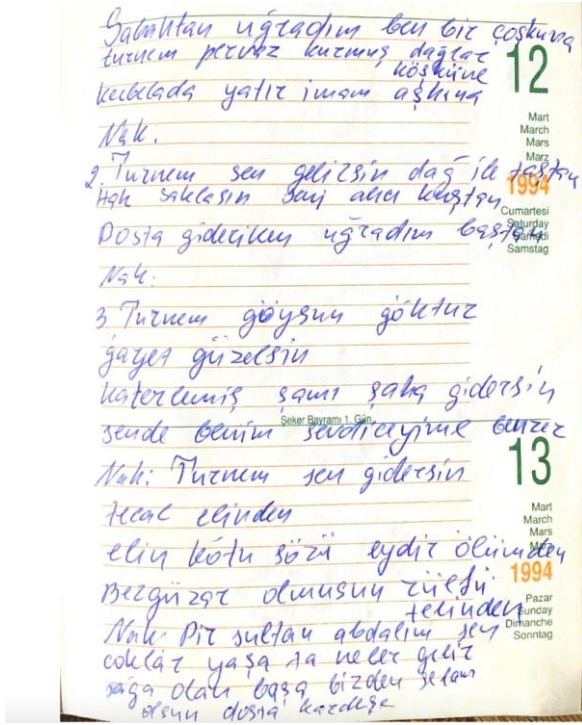 Sabahtan uğradım ben bir çoşkuna
turnem pervaz kurmuş dağlar
köşküne
kerbelada yatır imam aşkına
Nak.
2. Turnem sen gelirsin dağ ile taştan
Hak saklasın seni alıcı kuştan
Dosta gideriken uğradım baştan
Nak:
3 Turnem göysun göktur
gayet güzelsin
katerlemiş şamı şaha gidersin
sende benim sevdiceyime benzer
Nak: Turnem sen gidersin
tecal elinden
elin kötu sözü eydir ölümden
Bergüzar olmusun zülfü
telinden
Nak: Pir sultan abdalım sen
coklar yaşa ta neler gelir
sağa olan başa bizden selam
olsun dosta kardeşe
12
Mart
March
Mars
Marz
1994
Cumartesi
Saturday
Samedi
Samstag
Şeker Bayramı 1. Gün
13
Mart
March
Mars
1994
Pazar
Sunday
Dimanche
Sonntag